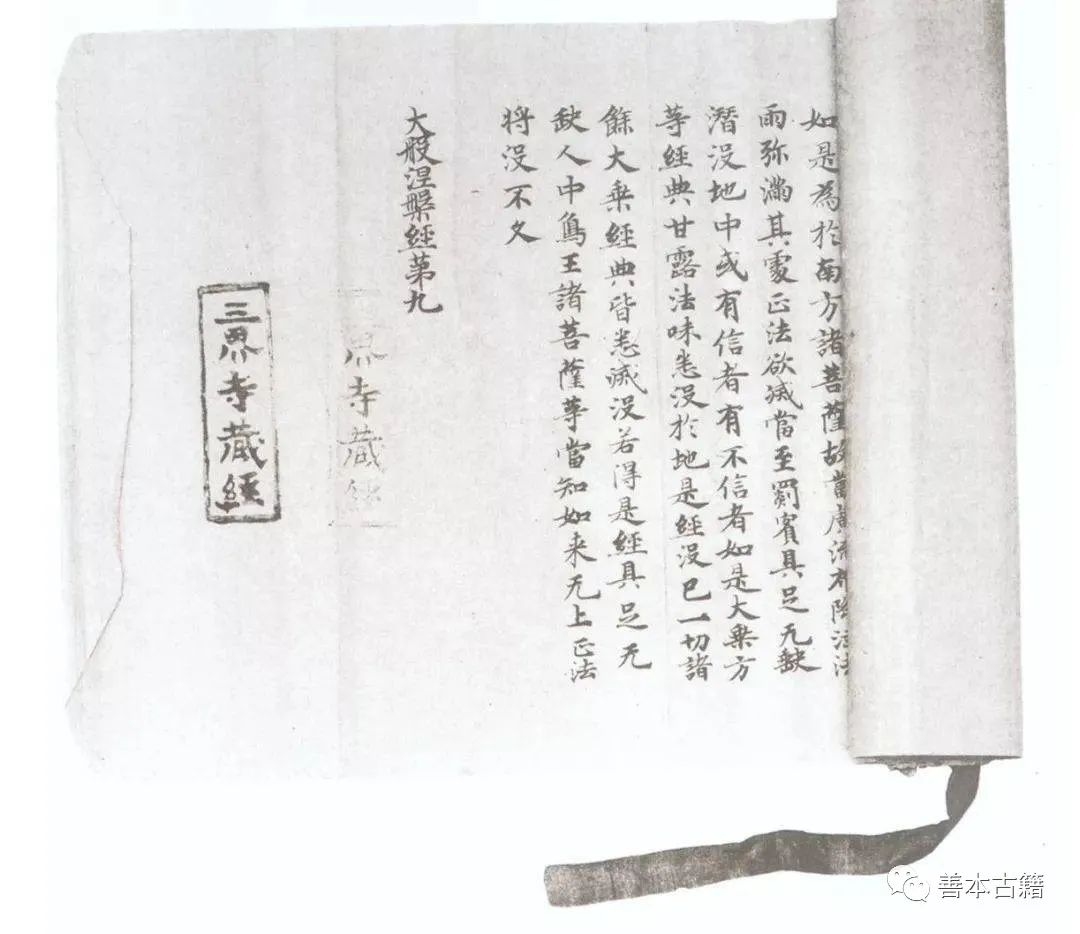 如是為於南方諸菩薩故當廣流布降注法
雨弥滿其處正法欲滅當至罽賓具足无缺
潛没地中或有信者有不信者如是大乘方
等經典甘露法味悉没於地是經没已一切諸
餘大乘經典皆悉滅没若得是經具足无
缺人中鳥王諸菩薩等當知如来无上正法
将没不久
大般涅槃經第九
界寺藏經
三界寺藏經
善本古籍